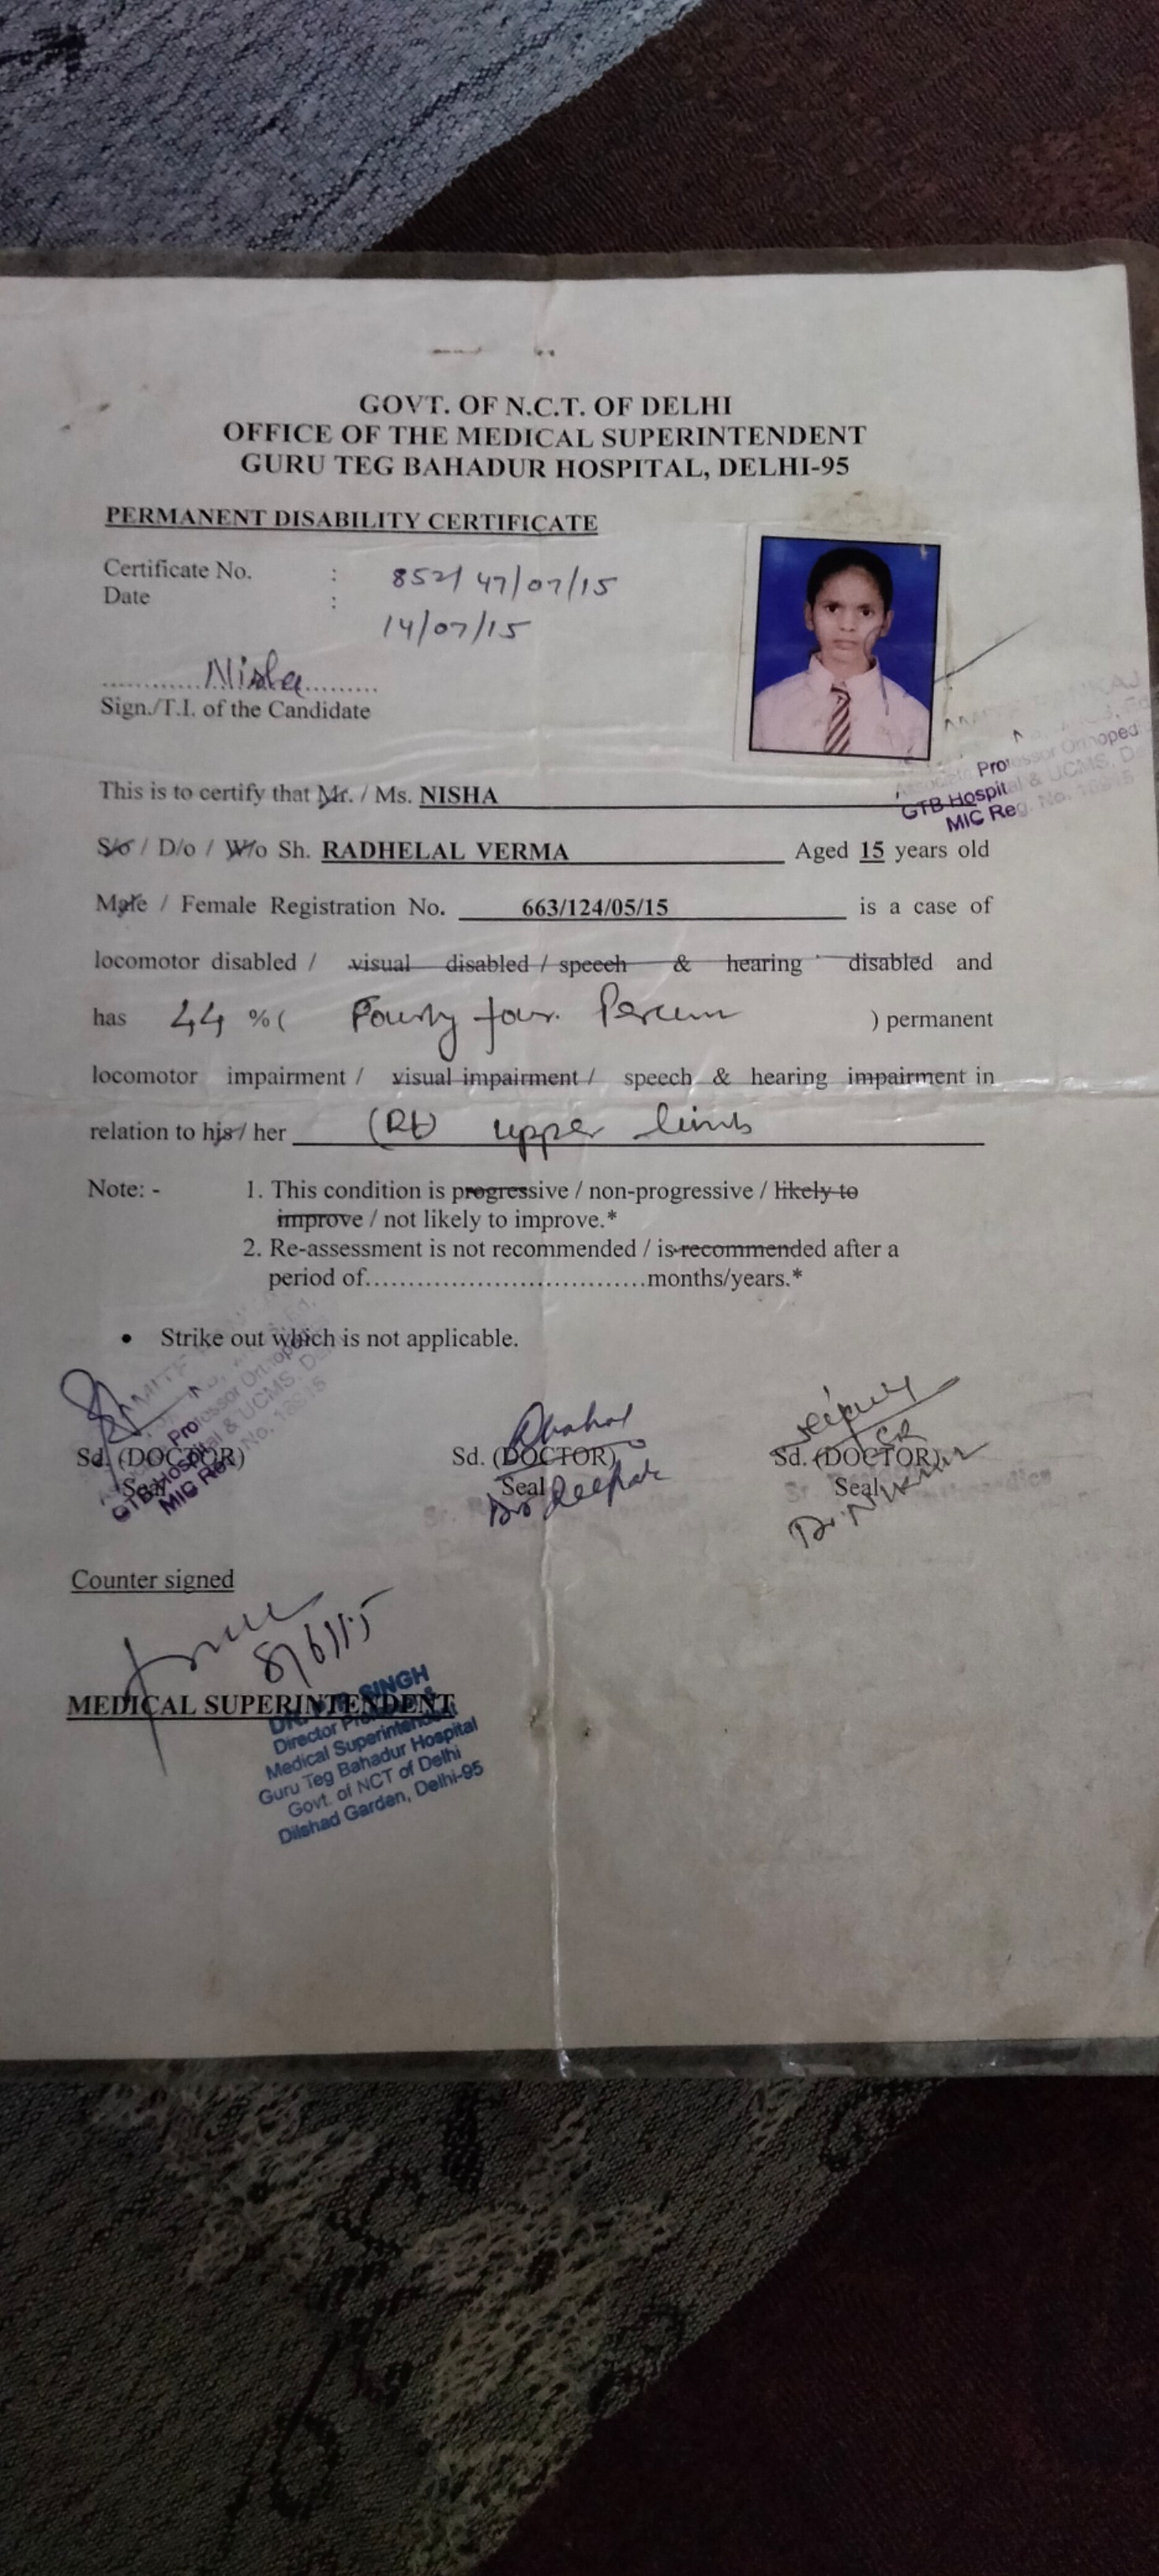 GOVT. OF N.C.T. OF DELHI
OFFICE OF THE MEDICAL SUPERINTENDENT
GURU TEG BAHADUR HOSPITAL, DELHI-95
PERMANENT DISABILITY CERTIFICATE
Certificate No. : 852/47/07/15
Date : 14/07/15
Nisha
Sign./T.I. of the Candidate
Associate Professor Orthoped
GTB Hospital & UCMS, De
MIC Reg. No.
This is to certify that Mr. / Ms. NISHA
S/o / D/o / W/o Sh. RADHELAL VERMA Aged 15 years old
Male / Female Registration No. 663/124/05/15 is a case of
locomotor disabled / visual disabled / speech & hearing disabled and
has 44 % ( Fourty four. Percen ) permanent
locomotor impairment / visual impairment / speech & hearing impairment in
relation to his / her (Rt) upper limb
Note: - 1. This condition is progressive / non-progressive / likely to
improve / not likely to improve.*
2. Re-assessment is not recommended / is recommended after a
period of................................months/years.*
• Strike out which is not applicable.
Professor Orthoped
GTB Hospital & UCMS, De
MIC Reg No.
Sd. (DOCTOR) Sd. (DOCTOR) Sd. (DOCTOR)
Seal Seal Seal
Dr Deepak
Counter signed
8/6/15
MEDICAL SUPERINTENDENT
SINGH
Director Professor &
Medical Superintendent
Guru Teg Bahadur Hospital
Govt. of NCT of Delhi
Dilshad Garden, Delhi-95